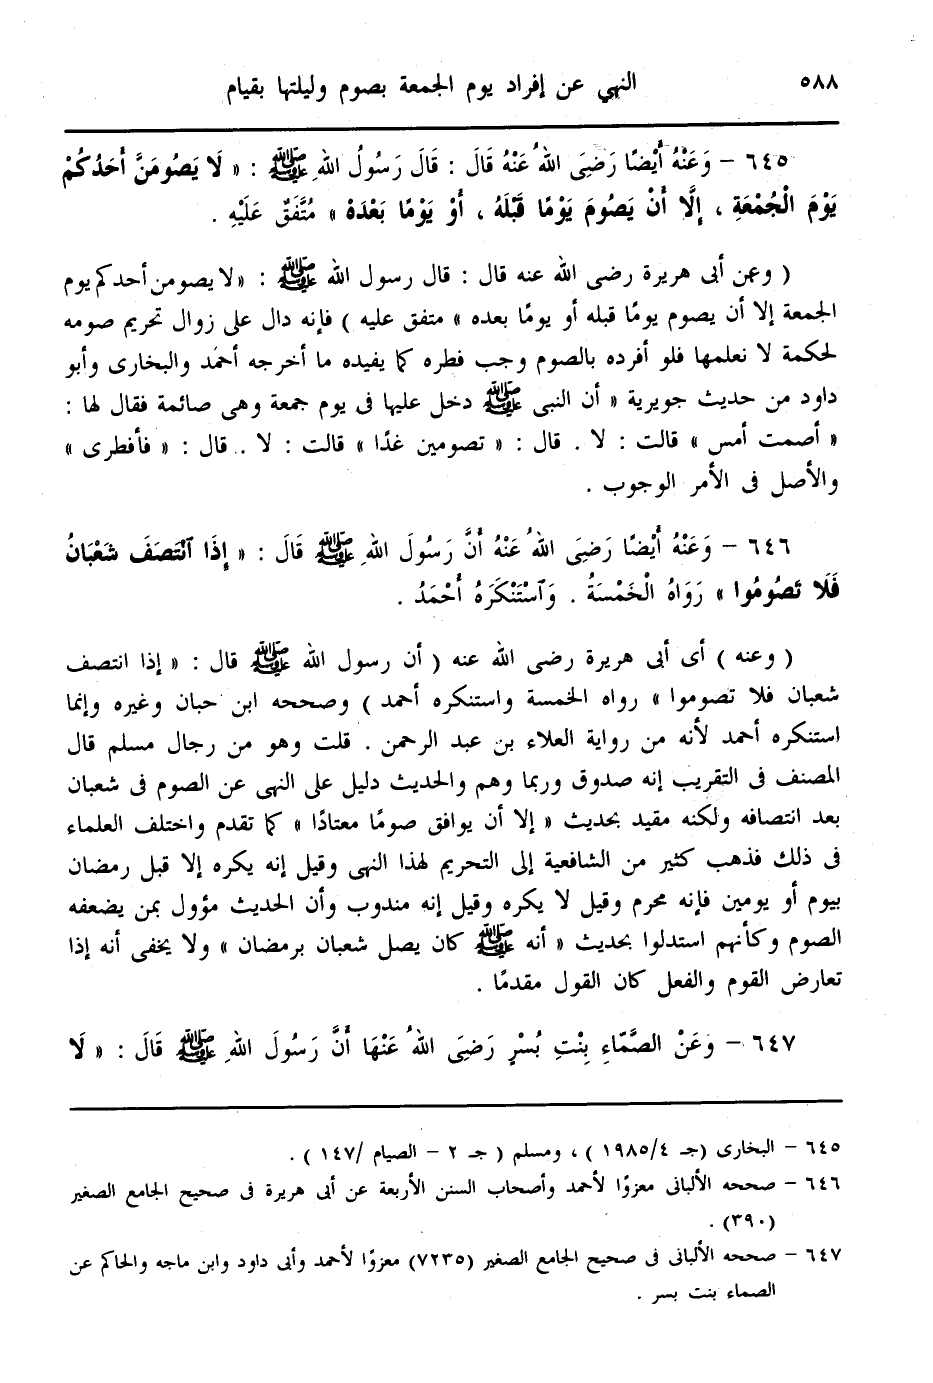 ٥٨٨ النهي عن إفراد يوم الجمعة بصوم وليلتها بقيام
٦٤٥ – وَعَنْهُ أَيْضًا رَضِىَ اللهُ عَنْهُ قَالَ : قَالَ رَسُولُ اللهِ ﷺ : « لَا يَصُومَنَّ أَحَدُكُمْ
يَوْمَ الْجُمْعَةِ ، إِلَّا أَنْ يَصُومَ يَوْمًا قَبْلَهُ ، أَوْ يَوْمًا بَعْدَهْ » مُتَّفَقٌ عَلَيْهِ .
( وعن أبى هريرة رضى الله عنه قال : قال رسول الله ﷺ : «لا يصومن أحدكم يوم
الجمعة إلا أن يصوم يومًا قبله أو يومًا بعده » متفق عليه ) فإنه دال على زوال تحريم صومه
لحكمة لا نعلمها فلو أفرده بالصوم وجب فطره كما يفيده ما أخرجه أحمد والبخارى وأبو
داود من حديث جويرية « أن النبى ﷺ دخل عليها فى يوم جمعة وهى صائمة فقال لها :
« أصمت أمس » قالت : لا . قال : « تصومين غدًا » قالت : لا .. قال : « فأفطرى »
والأصل فى الأمر الوجوب .
٦٤٦ – وَعَنْهُ أَيْضًا رَضِىَ اللهُ عَنْهُ أَنَّ رَسُولَ اللهِ ﷺ قَالَ : « إِذَا ٱنْتَصَفَ شَعْبَانُ
فَلَا تَصُومُوا » رَوَاهُ الْخَمْسَةُ . وَٱسْتَنْكَرَهُ أَحْمَدُ .
( وعنه ) أى أبى هريرة رضى الله عنه ( أن رسول الله ﷺ قال : « إذا انتصف
شعبان فلا تصوموا » رواه الخمسة واستنكره أحمد ) وصححه ابن حبان وغيره وإنما
استنكره أحمد لأنه من رواية العلاء بن عبد الرحمن . قلت وهو من رجال مسلم قال
المصنف فى التقريب إنه صدوق وربما وهم والحديث دليل على النهى عن الصوم فى شعبان
بعد انتصافه ولكنه مقيد بحديث « إلا أن يوافق صومًا معتادًا » كما تقدم واختلف العلماء
فى ذلك فذهب كثير من الشافعية إلى التحريم لهذا النهى وقيل إنه يكره إلا قبل رمضان
بيوم أو يومين فإنه محرم وقيل لا يكره وقيل إنه مندوب وأن الحديث مؤول بمن يضعفه
الصوم وكأنهم استدلوا بحديث « أنه ﷺ كان يصل شعبان برمضان » ولا يخفى أنه إذا
تعارض القوم والفعل كان القول مقدمًا .
٦٤٧ – وَعَنْ الصَّمَّاءِ بِنْتِ بُسْرٍ رَضِىَ اللهُ عَنْهَا أَنَّ رَسُولَ اللهِ ﷺ قَالَ : « لَا
٦٤٥ – البخارى (جـ ١٩٨٥/٤ ) ، ومسلم ( جـ ٢ – الصيام /١٤٧ ) .
٦٤٦ – صححه الألبانى معزوًا لأحمد وأصحاب السنن الأربعة عن أبى هريرة فى صحيح الجامع الصغير
(٣٩٠) .
٦٤٧ – صححه الألبانى فى صحيح الجامع الصغير (٧٢٣٥) معزوًا لأحمد وأبى داود وابن ماجه والحاكم عن
الصماء بنت بسر .